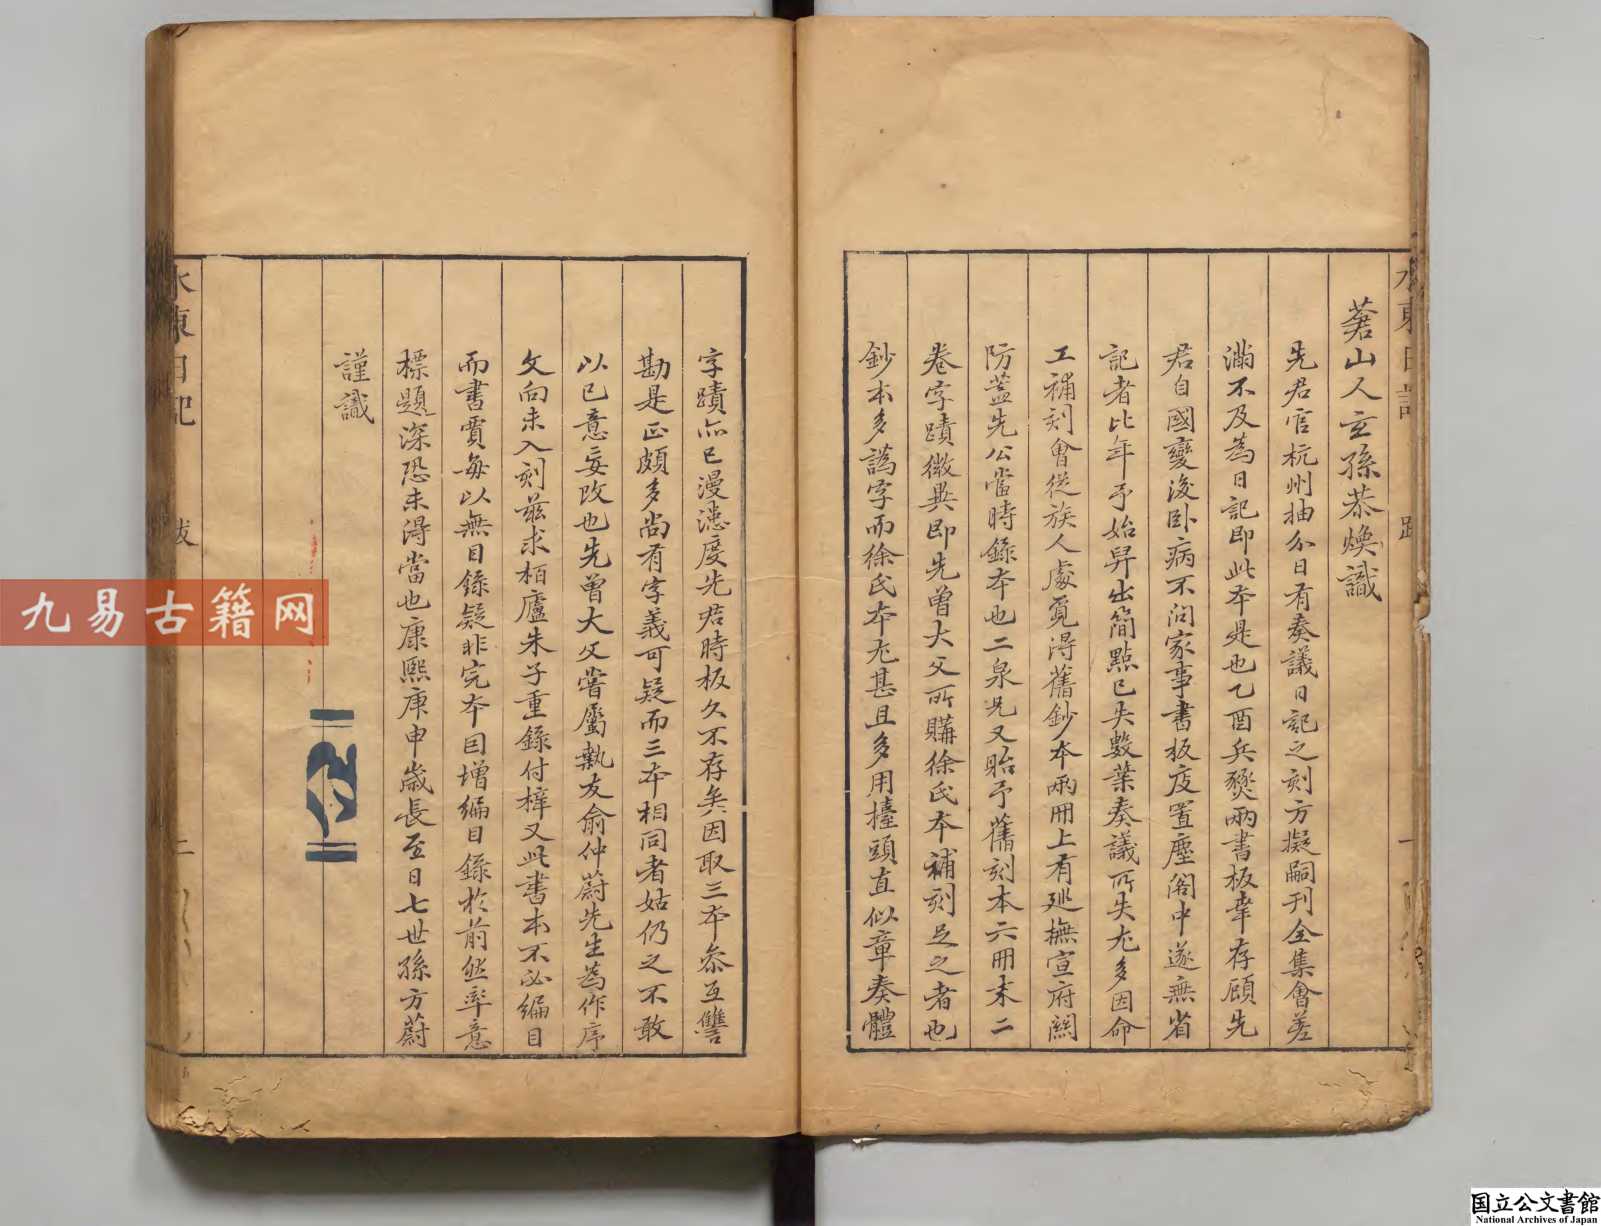 蒼山人玄孫恭煥識
先君官杭州抽分日有奏議日記之刻方擬嗣刊全集會差
滿不及為日記即此本是也乙酉兵燹兩書板幸存顧先
君自國變後卧病不問家事書板庋置塵閣中遂無省
記者比年予始舁出簡點已失數葉奏議所失尤多因命
工補刻會從族人處覓得舊鈔本兩冊上有巡撫宣府關
防葢先公當時錄本也二泉兄又貽予舊刻本六冊末二
卷字蹟微異即先曾大父所購徐氏本補刻足之者也
鈔本多譌字而徐氏本尤甚且多用擡頭直似章奏體
字蹟亦已漫漶度先君時板久不存矣因取三本叅互讐
勘是正頗多尚有字義可疑而三本相同者姑仍之不敢
以已意妄改也先曾大父嘗屬執友俞仲蔚先生為作序
文向未入刻茲求栢廬朱子重錄付梓又此書本不必編目
而書賈每以無目錄疑非完本因增編目錄於前然率意
標題深恐未得當也康熙庚申歲長至日七世孫方蔚
謹識
水東日記
跋
二
九易古籍网
国立公文書館
National Archives of Japan